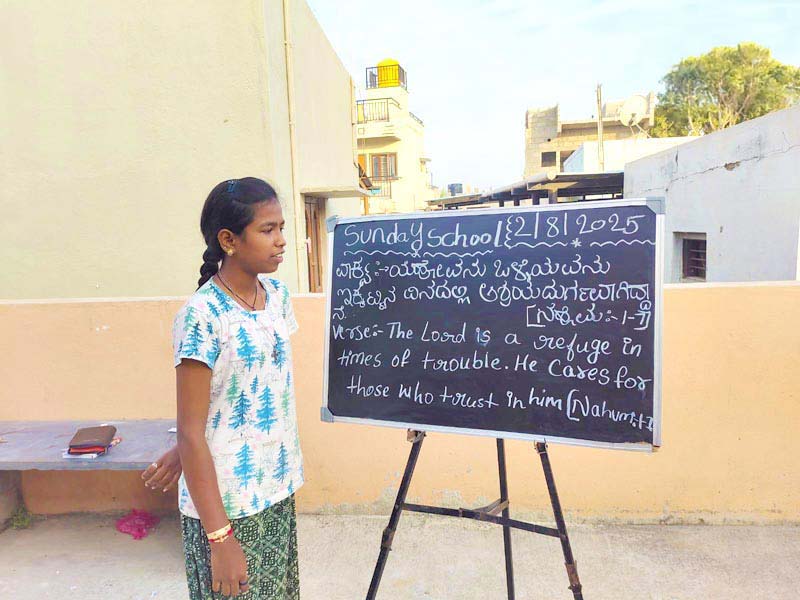 Sunday School {2|8|2025
ವಾಕ್ಯ:- ಯೆಹೋವನು ಒಳ್ಳೆಯವನು
ಇಕ್ಕಟ್ಟಿನ ದಿನದಲ್ಲಿ ಆಶ್ರಯದುರ್ಗವಾಗಿದ್ದಾ
ನೆ. [ನಹೂಮ:-1-7]
Verse:- The Lord is a refuge in
times of trouble. He cares for
those who trust in him [Nahum